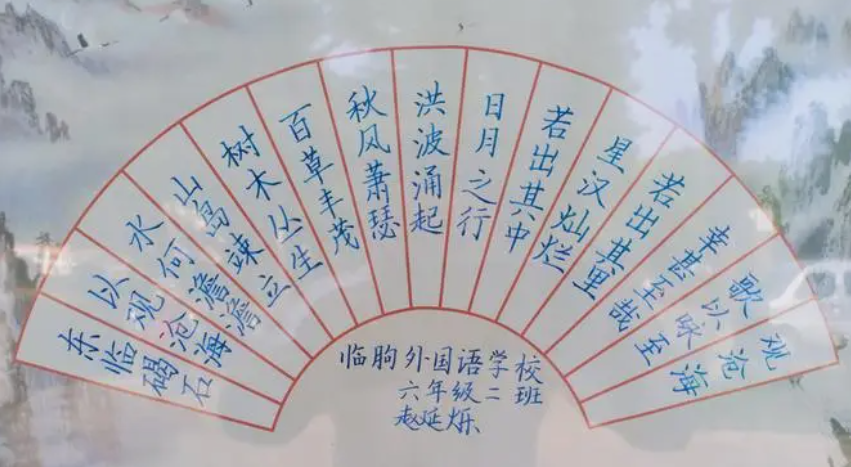 东临碣石
以观沧海
水何澹澹
山岛竦立
树木丛生
百草丰茂
秋风萧瑟
洪波涌起
日月之行
若出其中
星汉灿烂
若出其里
幸甚至哉
歌以咏至
观沧海
临朐外国语学校
六年级二班
赵延烁